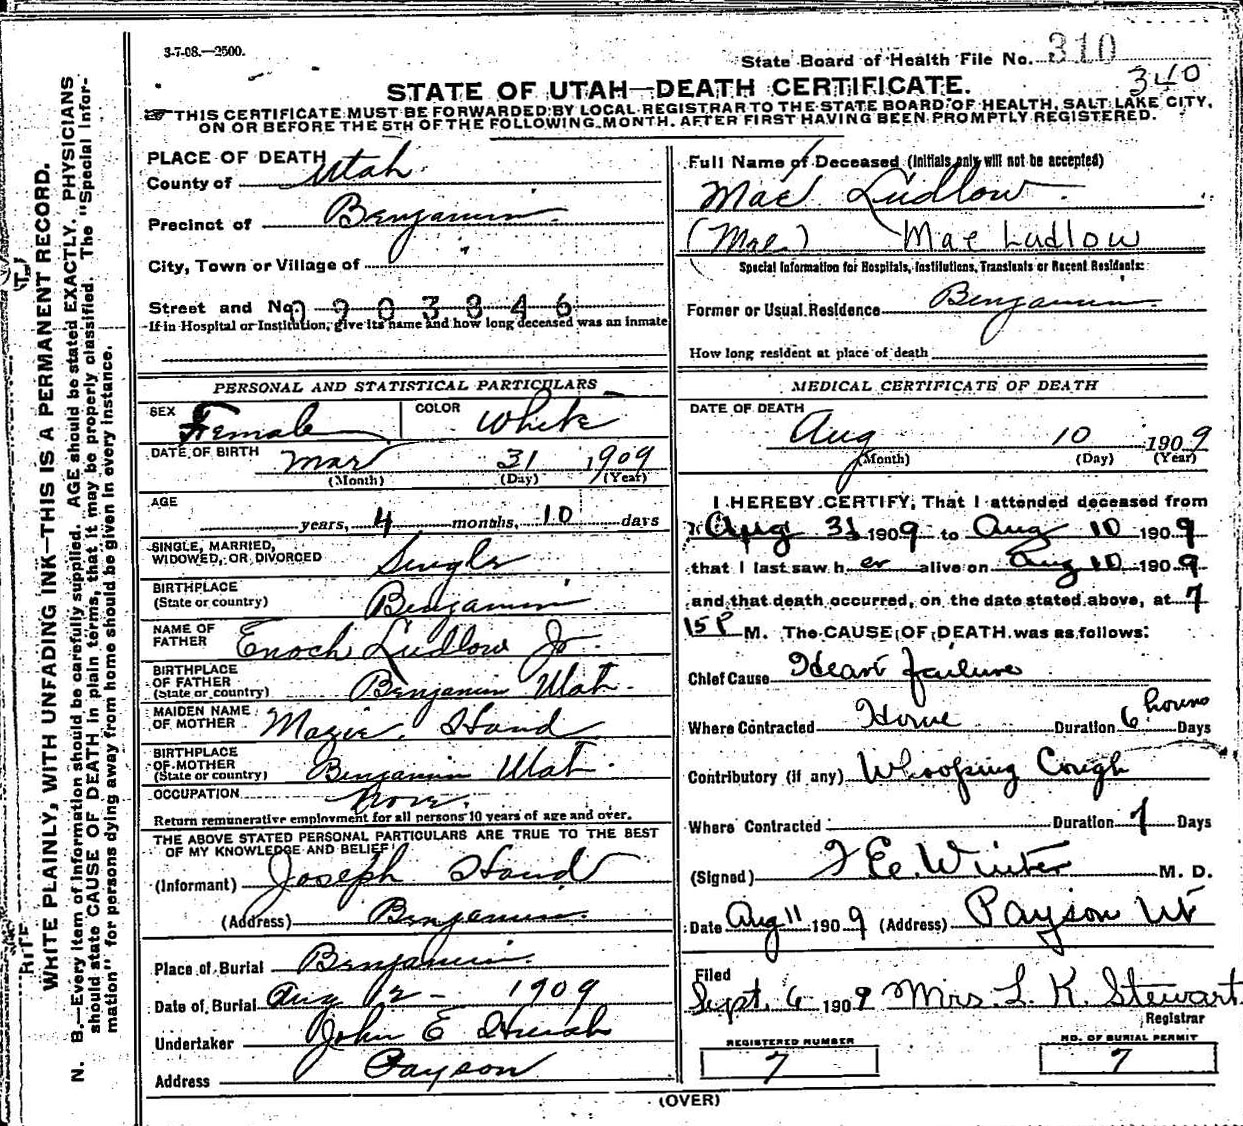 3-7-08.—2500.
State Board of Health File No. 310
340
STATE OF UTAH—DEATH CERTIFICATE.
THIS CERTIFICATE MUST BE FORWARDED BY LOCAL REGISTRAR TO THE STATE BOARD OF HEALTH, SALT LAKE CITY,
ON OR BEFORE THE 5TH OF THE FOLLOWING MONTH, AFTER FIRST HAVING BEEN PROMPTLY REGISTERED.
WHITE PLAINLY, WITH UNFADING INK—THIS IS A PERMANENT RECORD.
N. B.—Every item of information should be carefully supplied. AGE should be stated EXACTLY. PHYSICIANS
should state CAUSE OF DEATH in plain terms, that it may be properly classified. The "Special Infor-
mation" for persons dying away from home should be given in every instance.
PLACE OF DEATH
County of Utah
Precinct of Benjamin
City, Town or Village of
Street and No. 903346
If in Hospital or Institution, give its name and how long deceased was an inmate
Full Name of Deceased (Initials only will not be accepted)
Mae Ludlow
(Mae) Mae Ludlow
Special Information for Hospitals, Institutions, Transients or Recent Residents:
Former or Usual Residence Benjamin
How long resident at place of death
PERSONAL AND STATISTICAL PARTICULARS
SEX Female COLOR White
DATE OF BIRTH Mar 31 1909
(Month) (Day) (Year)
AGE
years, 4 months, 10 days
SINGLE, MARRIED,
WIDOWED, OR DIVORCED Single
BIRTHPLACE
(State or country) Benjamin
NAME OF
FATHER Enoch Ludlow Jr.
BIRTHPLACE
OF FATHER
(State or country) Benjamin Utah.
MAIDEN NAME
OF MOTHER Mazie Hand
BIRTHPLACE
OF MOTHER
(State or country) Benjamin Utah.
OCCUPATION None.
Return remunerative employment for all persons 10 years of age and over.
THE ABOVE STATED PERSONAL PARTICULARS ARE TRUE TO THE BEST
OF MY KNOWLEDGE AND BELIEF
(Informant) Joseph Hand
(Address) Benjamin
Place of Burial Benjamin
Date of Burial Aug 12- 1909
Undertaker John E
Address Payson
MEDICAL CERTIFICATE OF DEATH
DATE OF DEATH
Aug 10 1909
(Month) (Day) (Year)
I HEREBY CERTIFY, That I attended deceased from
31 1909 to Aug 10 1909
that I last saw her alive on Aug 10 1909
and that death occurred, on the date stated above, at 7
15 P M. The CAUSE OF DEATH was as follows:
Chief Cause Heart failure
Where Contracted Home Duration 6 hours Days
Contributory (if any) Whooping Cough
Where Contracted Duration 7 Days
(Signed) Winter M. D.
Date Aug 11 1909 (Address) Payson Ut
Filed
Sept. 6 1909 Mrs L. K. Stewart
Registrar
REGISTERED NUMBER
7
NO. OF BURIAL PERMIT
7
(OVER)